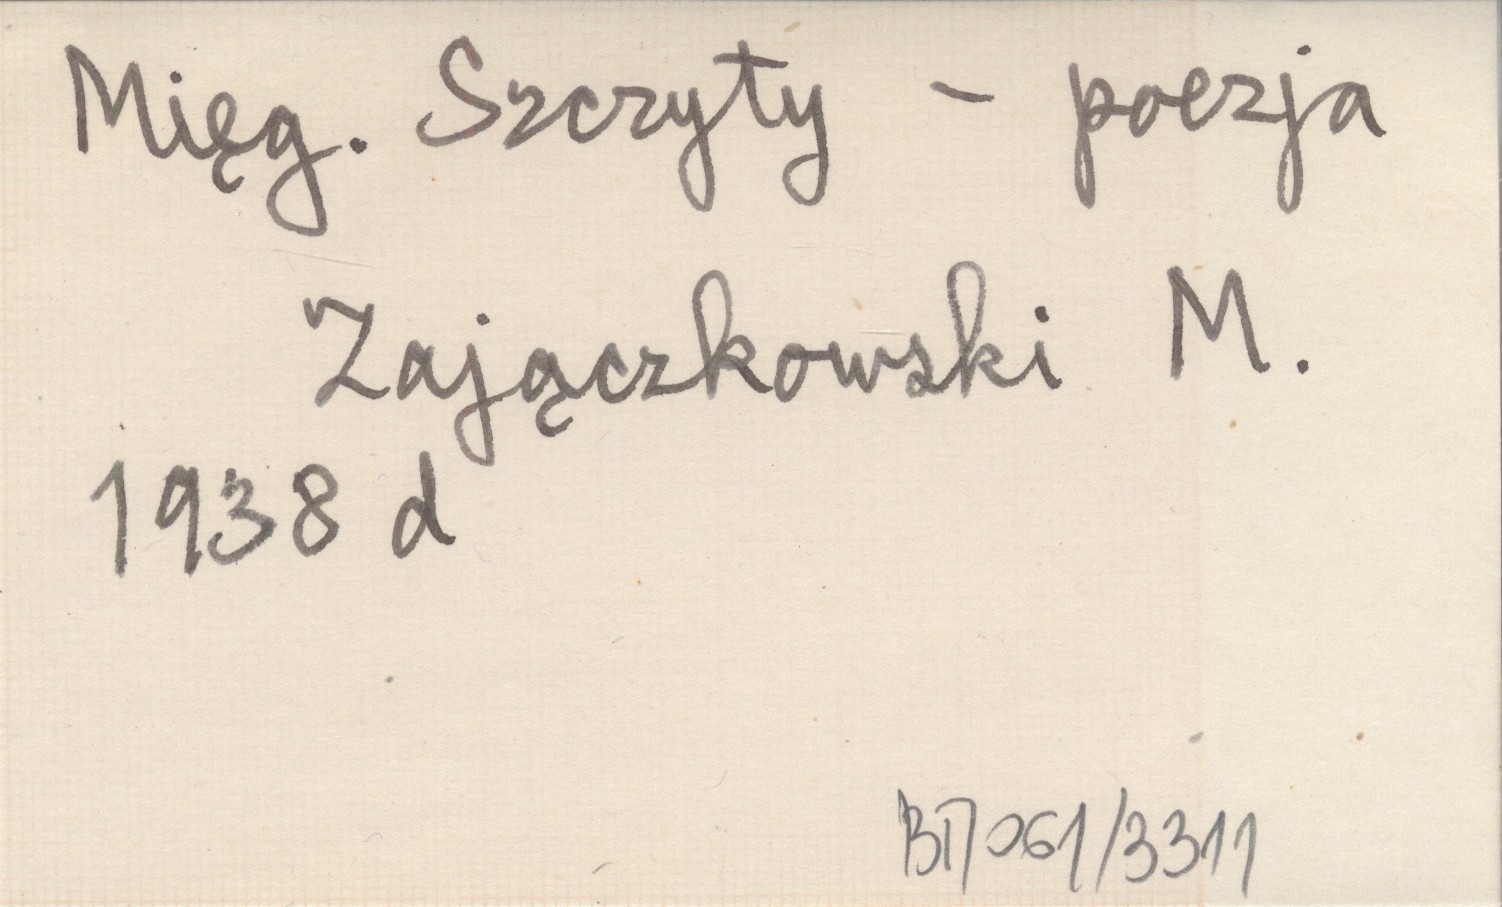 Mięg. Szczyty - poezja
Zajączkowski M.
1938 d
061/3311